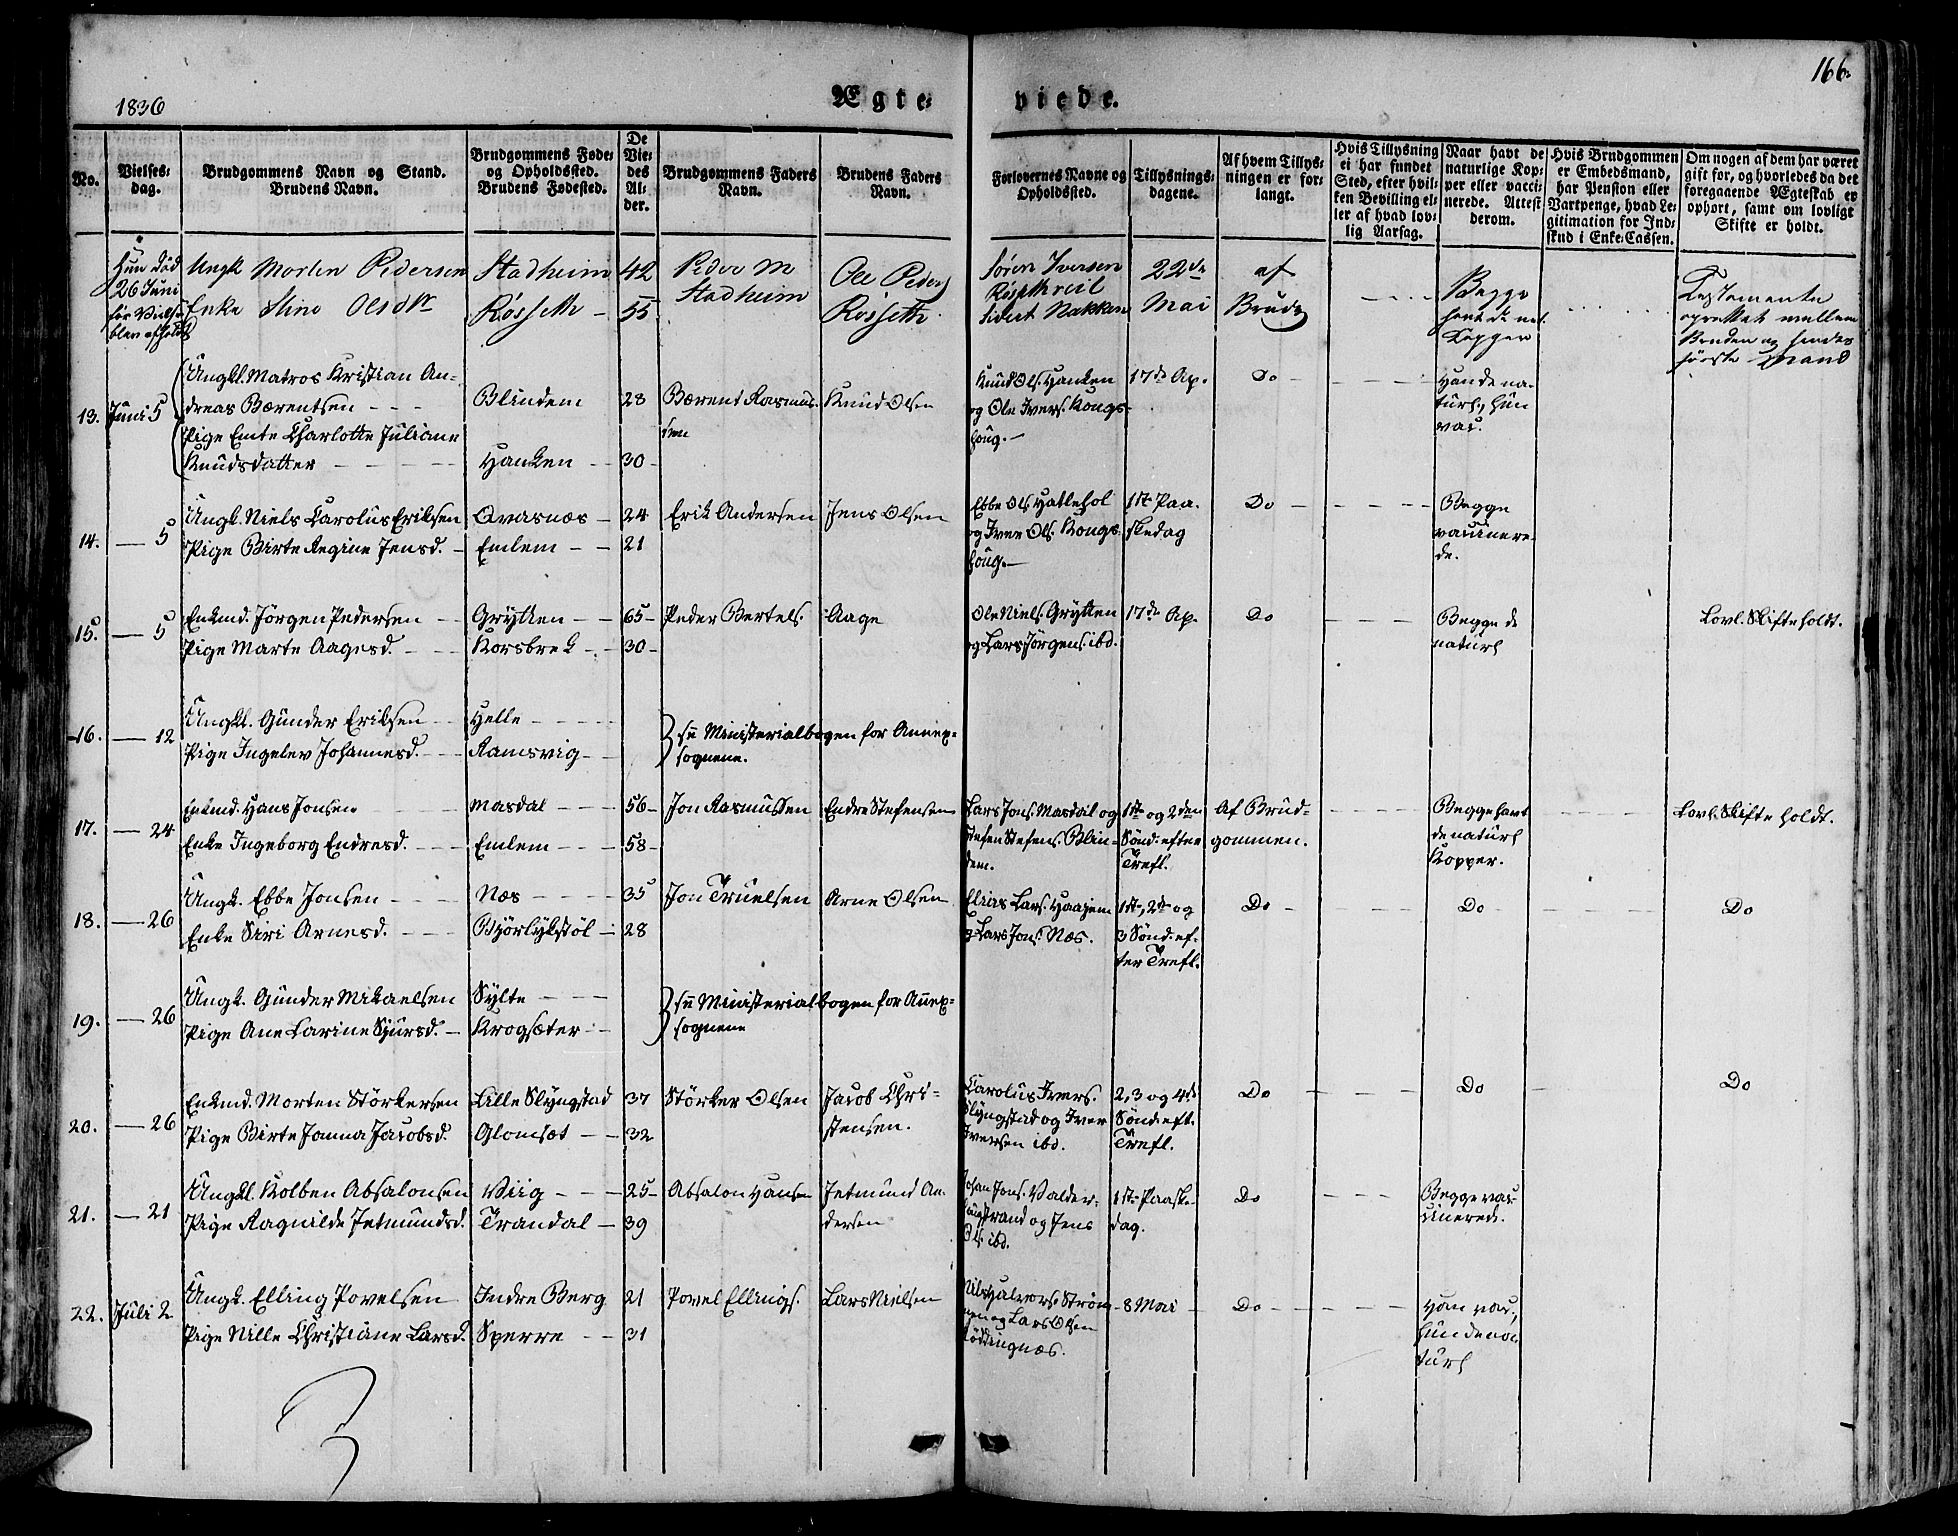 166.
1836
Ægte-
viede.
No.
Vielses-
dag.
Brudgommens Navn og Stand.
Brudens Navn.
Brudgommens Føde-
og Opholdssted.
Brudens Fødested.
De
Vie-
des
Al-
der.
Brudgommens Faders
Navn.
Brudens Faders
Navn.
Forlovernes Navne og
Opholdssted.
Tillysnings-
dagene.
Af hvem Tillys-
ningen er for-
langt.
Hvis Tillysning
ei har fundet
Sted, efter hvil-
ken Bevilling el-
ler af hvad lov-
lig Aarsag.
Naar havt de
naturlige Kop-
per eller vacci-
nerede. Attest
derom.
Hvis Brudgommen
er Embedsmand,
har Pension eller
Vartpenge, hvad Le-
gitimation for Ind-
skud i Enke-Cassen.
Om nogen af dem har været
gift før, og hvorledes da det
foregaaende Ægteskab er
ophørt, samt om lovligt
Skifte er holdt.
Hun død
26 Juni
før Vielse
blev afholdt
Ungk Morten Pedersen
Enke Stine Olsdtr
Stadheim
Røsseth
42
55
Peder M
Stadheim
Ole Peders
Røsseth
Søren Iversen
Sivert Nakken
22de
Mai
af
Brude
Begge
havt de nat.
Kopper
Testamente
oprettet mellem
Bruden og hendes
første Mand
13. Juni 5
Ungkl. Matros Kristian An-
dreas Bærentsen
Pige Emte Charlotte Juliane
Knudsdatter
Blindem
Hanken
28
30
Bærent Rasmus-
sen
Knud Olsen
Knud Ols. Hanken
og Ole Ivers. Kongs-
houg.
17de Ap.
Do
Han de na-
turl., hun
vac.
14. — 5
Ungk. Niels Carolus Eriksen
Pige Birte Regine Jensd.
Qvasnæs
Emlem
24
21
Erik Andersen
Jens Olsen
Ebbe Ols Hatlehol
og Iver Ols. Kongs-
houg.
1st Paa-
skedag
Do
Begge
vaccinere-
de.
15. — 5
Enkmd. Jørgen Pedersen
Pige Marte Aagesd.
Grytten
Korsbrek
65
30
Peder Bertels.
Aage
Ole Niels. Grytten
og Lars Jørgens. ibd.
17de Ap.
Do
Begge de
naturl
Lovl. Skifte holdt.
16. — 12
Ungkl. Gunder Eriksen
Pige Ingelev Johannesd.
Helle
Ramsvig
se Ministerialbogen for Annex-
sognene.
17. — 24
Enkmd. Hans Jonsen
Enke Ingeborg Endresd.
Masdal
Emlem
56
58
Jon Rasmussen
Endre Stefensen
Lars Jons. Masdal og
Stefen Stefens. Blin-
dem.
1ste og 2den
Sønd. efter
Trefl.
Af Brud-
gommen.
Begge havt
de naturl
Kopper.
Lovl. Skifte holdt.
18. — 26
Ungk. Ebbe Jonsen
Enke Siri Arnesd.
Næs
Bjørlykstøl
35
28
Jon Truelsen
Arne Olsen
Elias Lars. Haajem
og Lars Jons. Næs.
1ste, 2de og
3 Sønd. ef-
ter Trefl.
Do
Do
Do
19. — 26
Ungk. Gunder Mikaelsen
Pige Ane Larine Sjursd.
Sylte
Krogsæter
se Ministerialbogen for Annex-
sognene
20. — 26
Enkmd. Morten Størkersen
Pige Birte Janna Jacobsd.
Lille Slyngstad
Glomsæt
37
32
Størker Olsen
Jacob Chri-
stensen.
Carolus Ivers.
Slyngstad og Iver
Iversen ibd.
2, 3 og 4de
Sønd. eft.
Trefl.
Do
Do
Do
21. — 21
Ungkl. Kolben Absalonsen
Pige Ragnilde Jetmundsd.
Viig
Trandal
25
39
Absalon Hansen
Jetmund An-
dersen
Johan Jons. Valder-
haugstrand og Jens
Ols. ibd.
1ste Paaske-
dag.
Do
Begge vac-
cinered.
22. Juli 2
Ungk. Elling Povelsen
Pige Nille Christiane Larsd.
Indre Berg
Sperre
21
31
Povel Ellings.
Lars Nielsen
Nils Halvors. Strøm-
men og Lars Olsen
Løddingnæs.
8 Mai
Do
Han vac.,
hun de na-
turl